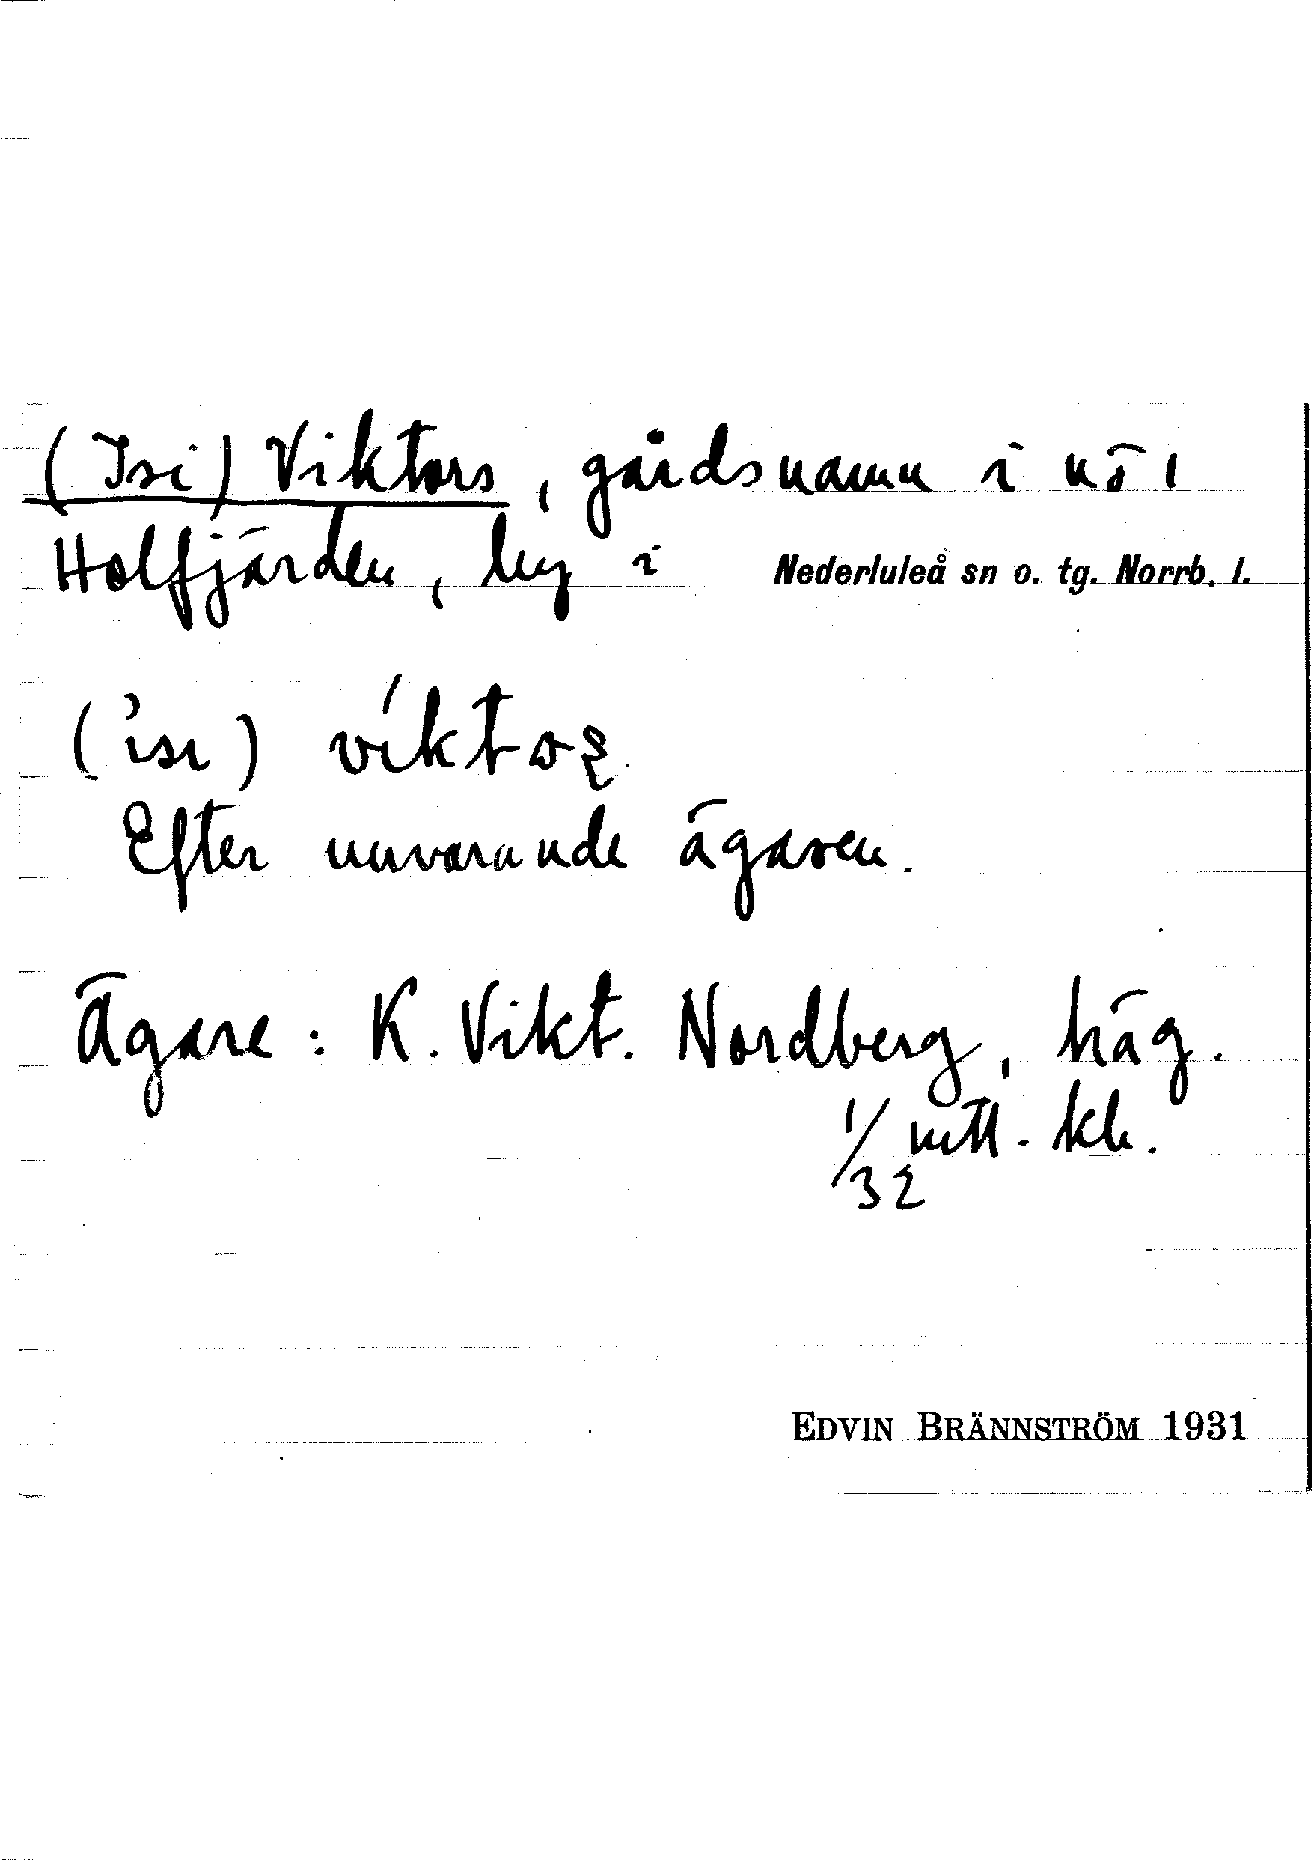 (Isi) Viktors, gårdsnamn i nö i
Holfjärden, by i Nederluleå sn o. tg. Norrb. l.
(ˈisɩ) víktoʂ.
Efter nuvarande ägaren.
Ägare: K. Vikt. Nordberg, häg.
1/32 mtl. kh.
EDVIN BRÄNNSTRÖM 1931